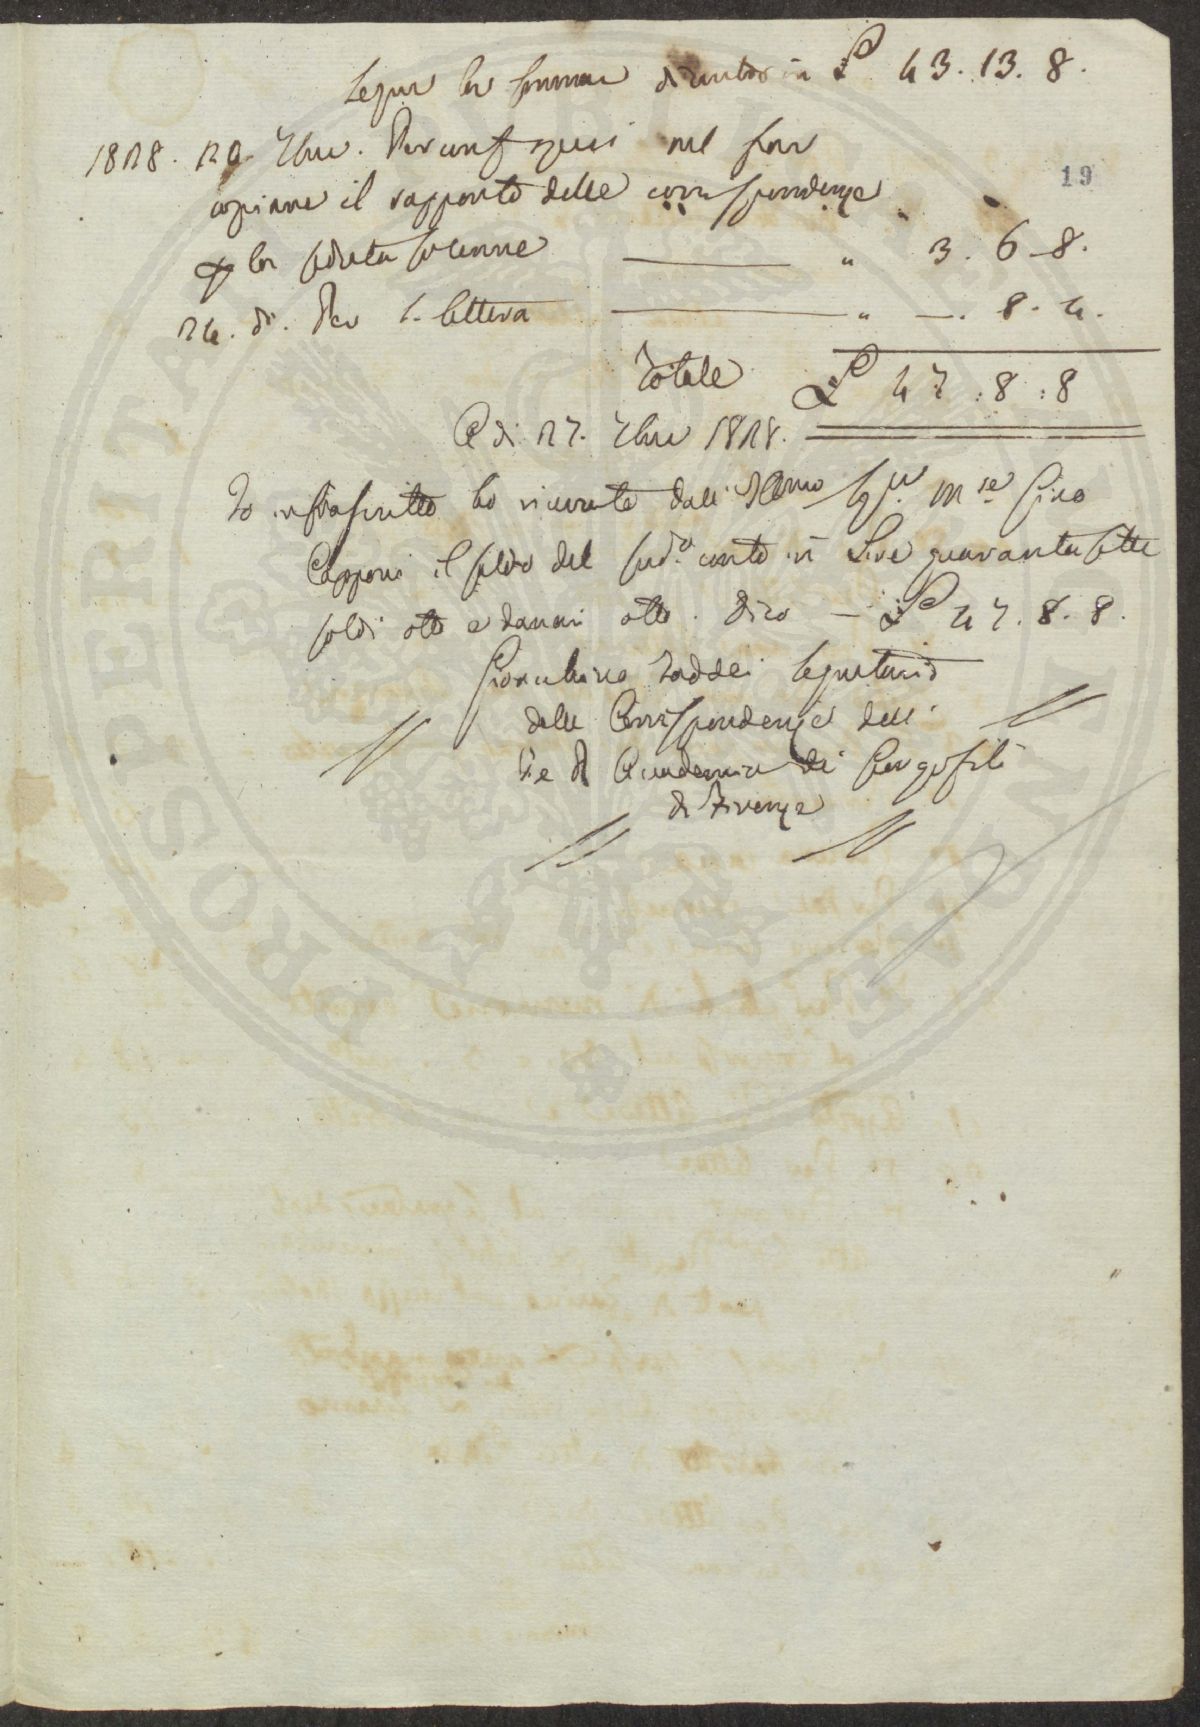 Segue la somma di contro in £ 43. 13. 8.
19
1828. 20. 7bre. Per consf nel far
copiare il rapporto delle corrispondenze
p la seduta solenne " 3. 6. 8.
24. do. Per 1. lettera " —. 8. 4.
Totale £ 47 : 8 : 8
A di 27. 7bre 1828.
Io infrascritto ho ricevuto dall' Illmo Sigr. Mse Gino
Capponi il saldo del sudo. conto in Lire quarantasette
soldi otto e danari otto. Dico — £ 47. 8. 8.
Gioacchino Taddei Segretario
delle Corrispondenze dell'
I e R Accademia dei Georgofili
di Firenze
PROSPERITATI PUBLICAE AUGENDAE